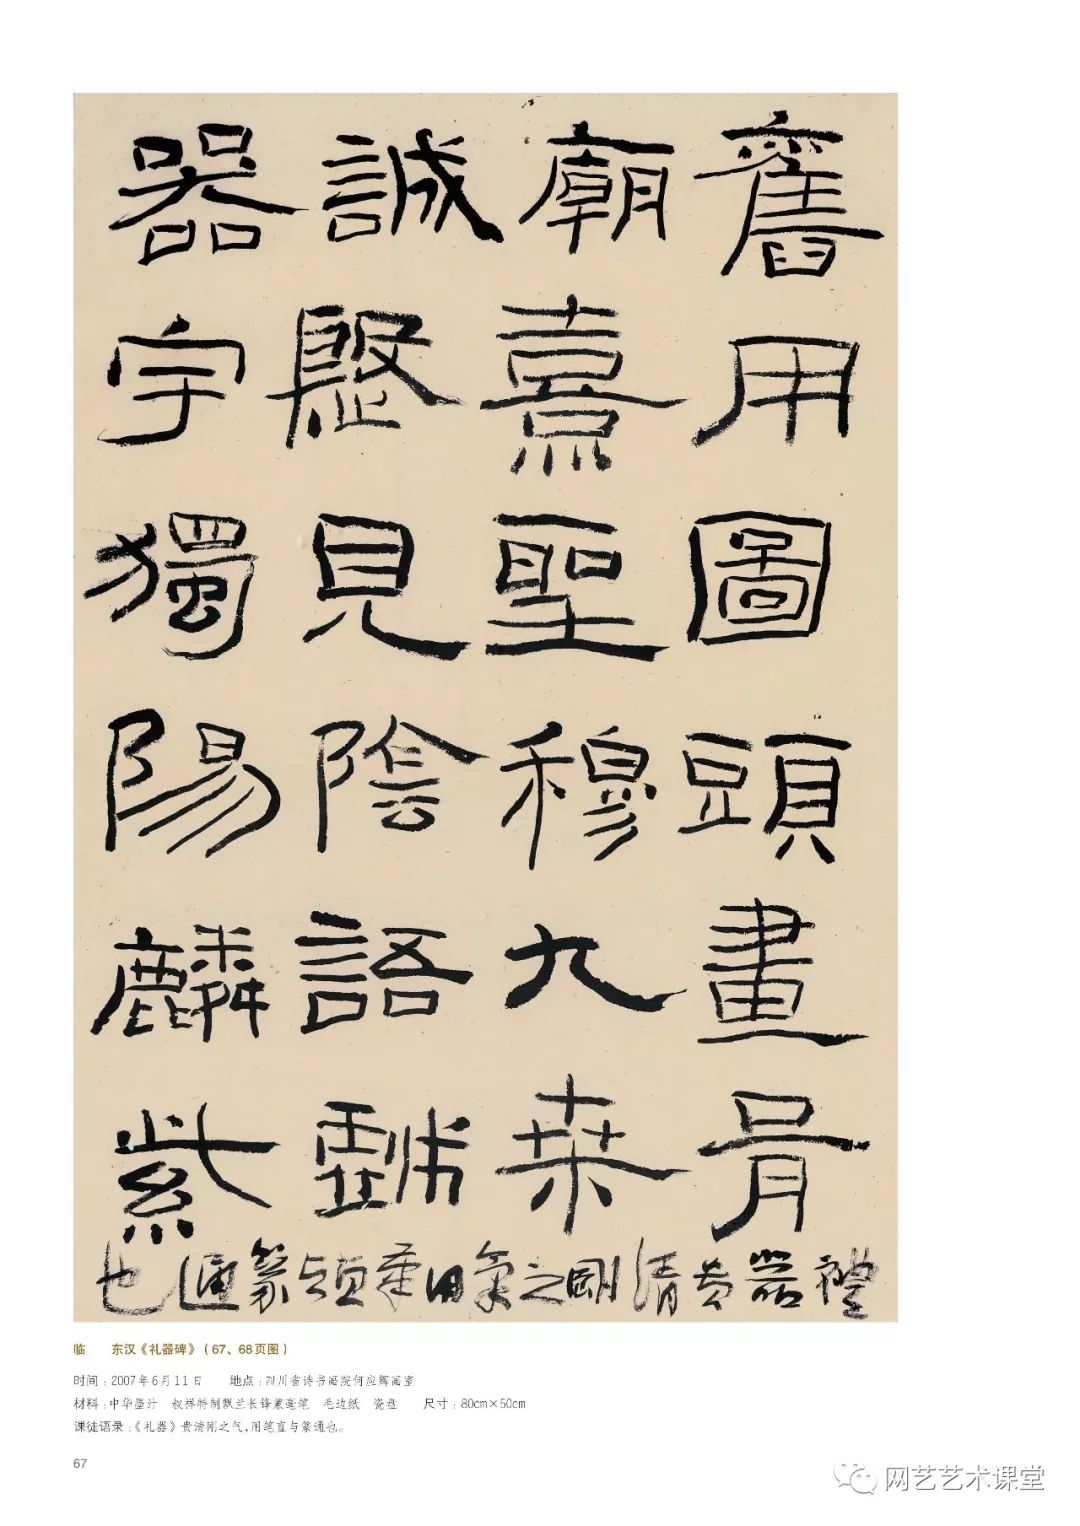 舊用圖頭畫
廟熹聖穆九桒
誠見陰語
器宇獨陽麟紫
禮器貴清剛之氣用筆直与篆通也
临 东汉《礼器碑》(67、68页图)
时间:2007年6月11日 地点:四川省诗书画院何应辉画室
材料:中华墨汁 叔祥特制飘兰长锋兼毫笔 毛边纸 瓷盘 尺寸:80cm×50cm
课徒语录:《礼器》贵清刚之气,用笔直与篆通也。
67
网艺艺术课堂